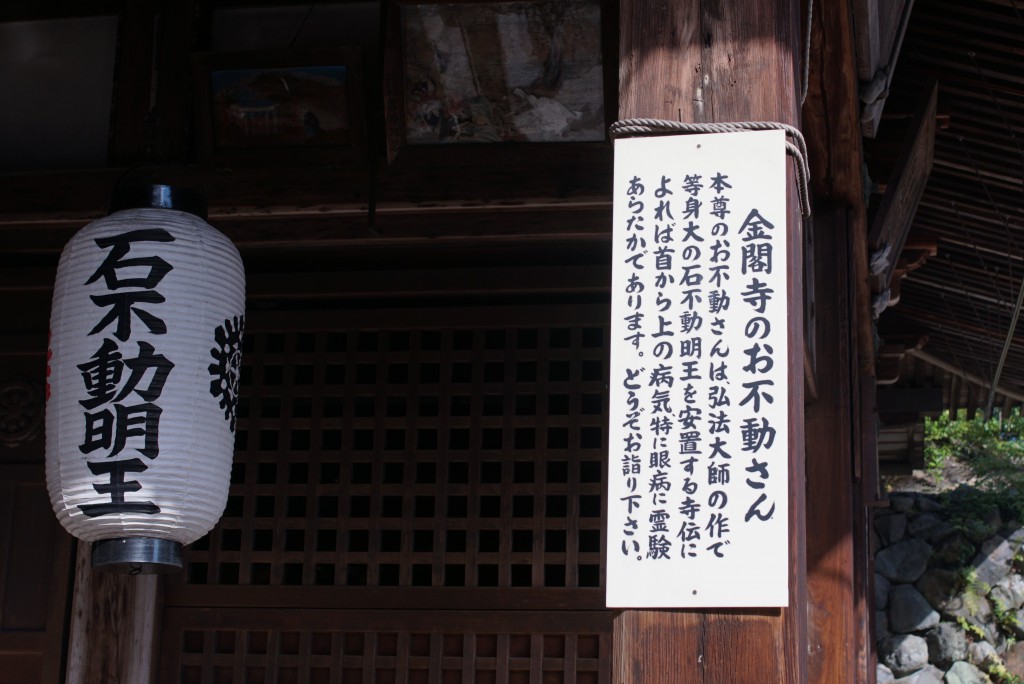 金閣寺のお不動さん
本尊のお不動さんは、弘法大師の作で
等身大の石不動明王を安置する寺伝に
よれば首から上の病気、特に眼病に霊験
あらたかであります。どうぞお詣り下さい。
石不動明王